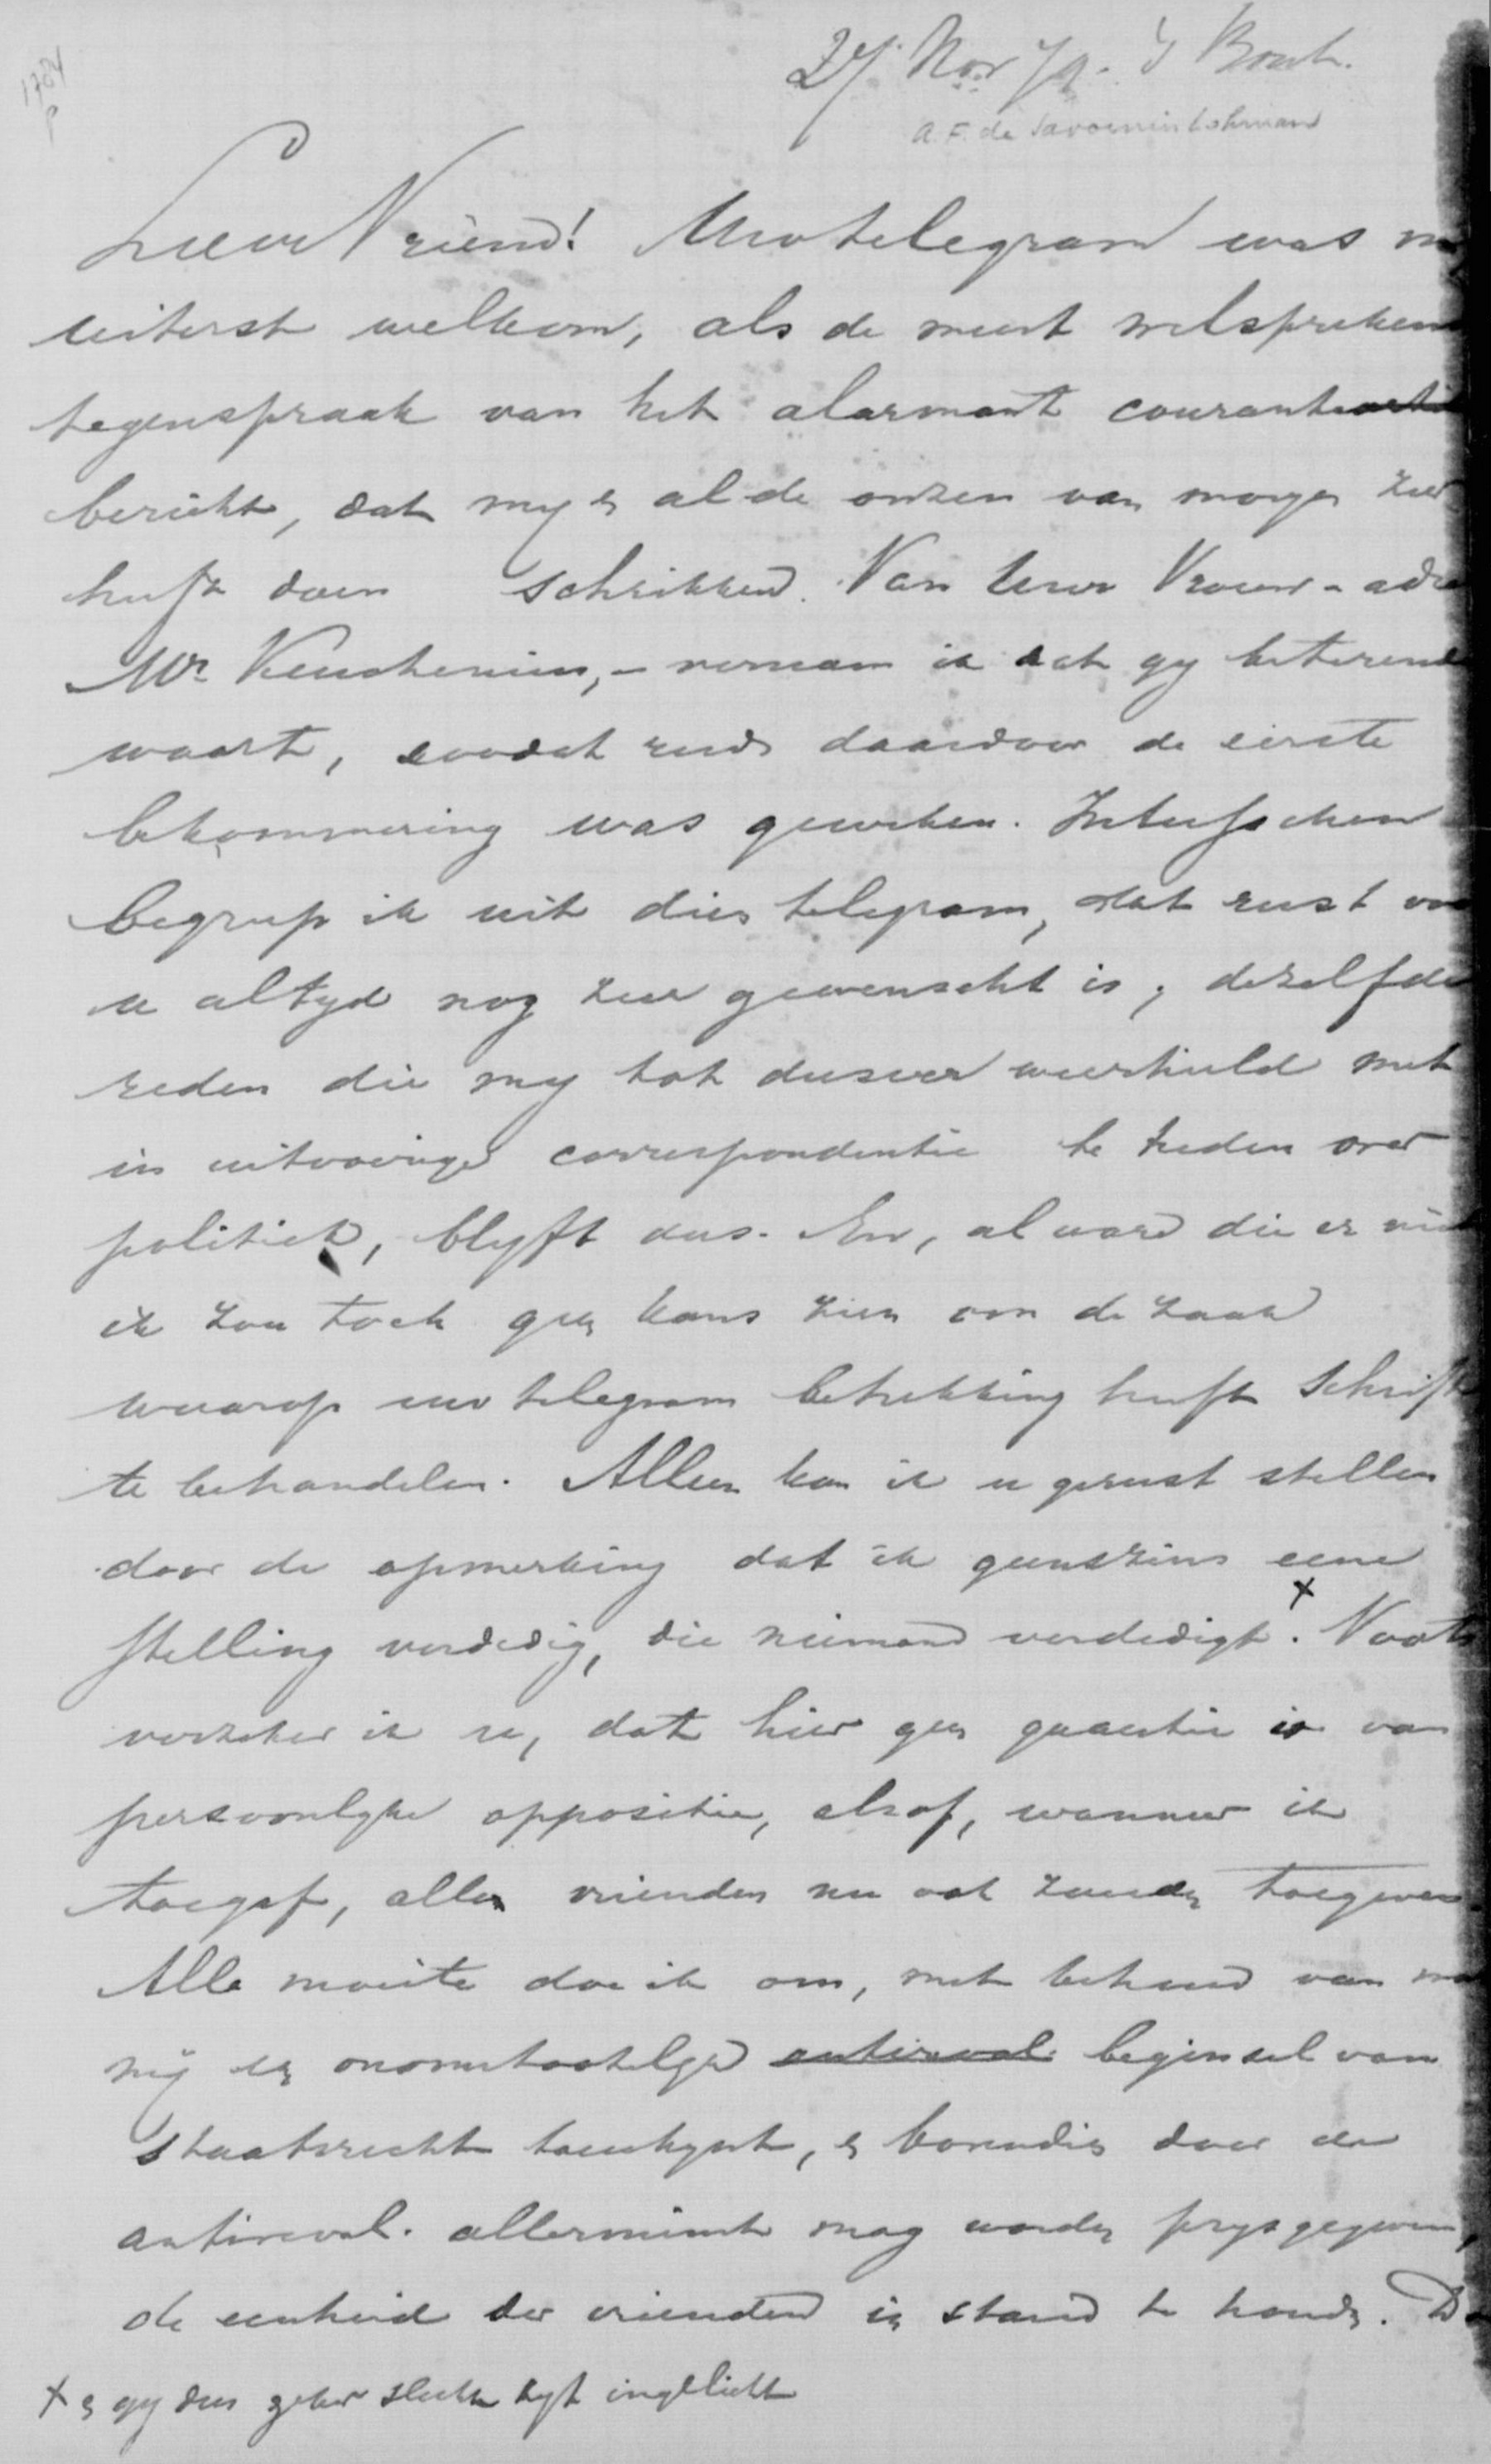 1784
P
27 Nov 79. 's Bosch.
A.F. de Savornin Lohman
Lieve Vriend! Uw telegram was m
uiterst welkom, als de meest welspreken
tegenspraak van het alarmant courant
bericht, dat my & al de onzen van morgen zeer
heeft doen schrikken. Van Uwe Vrouw - adre
Mr Keuchenius, - vernam ik dat gy beterend
waart, zoodat reeds daardoor de eerste
bekommering was geweken. Intusschen
begreep ik uit dies telegram, dat rust voo
u altyd nog zeer gewenscht is; dezelfde
reden die my tot dusver weerhield met
in uitvoerige correspondentie te treden over
politiek, blyft dus. En, al ware die er nie
ik zou toch geen kans zien om de zaak
waarop uw telegram betrekking heeft schrift
te behandelen. Alleen kan ik u gerust stellen
door de opmerking dat ik geenszins eene
stelling verdedig, die niemand verdedigt. x Voorts
verzeker ik u, dat hier geen quaestie is van
persoonlyke oppositie, alsof, wanneer ik
toegaf, alle vrienden nu ook zouden toegeven.
Alle moeite doe ik om, met behoud van wa
my een onomstootelyk antireval. beginsel van
staatsrecht toeschynt, & bovendien door de
antireval. allerminst mag worden prysgegeven,
de eenheid der vrienden in stand te houden. D
x & gy dus zeker slecht zyt ingelicht